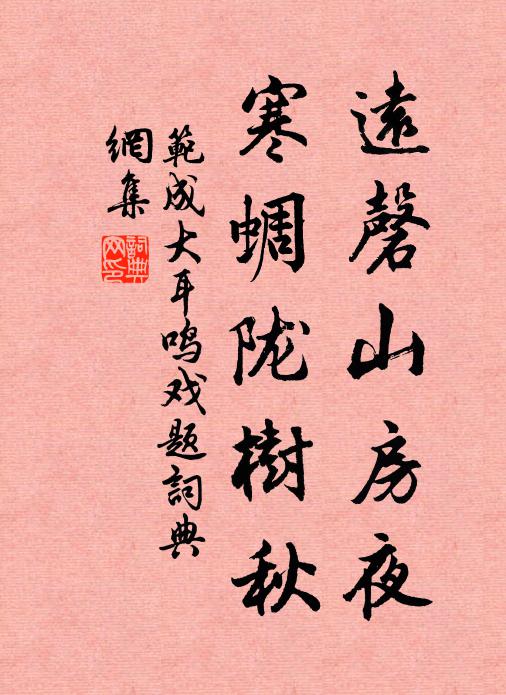 遠磬山房夜
寒蜩陇樹秋
範成大耳鸣戏题詞典
網集
詞典
网印